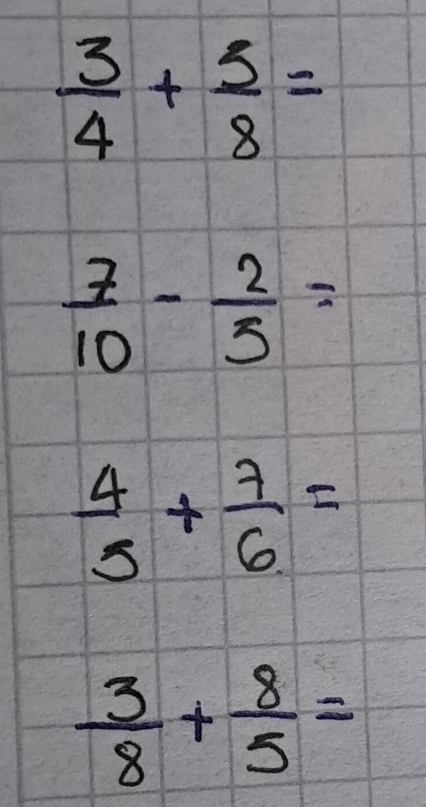 3/4 + 5/8 =
7/10 - 2/5 =
4/5 + 7/6 =
3/8 + 8/5 =